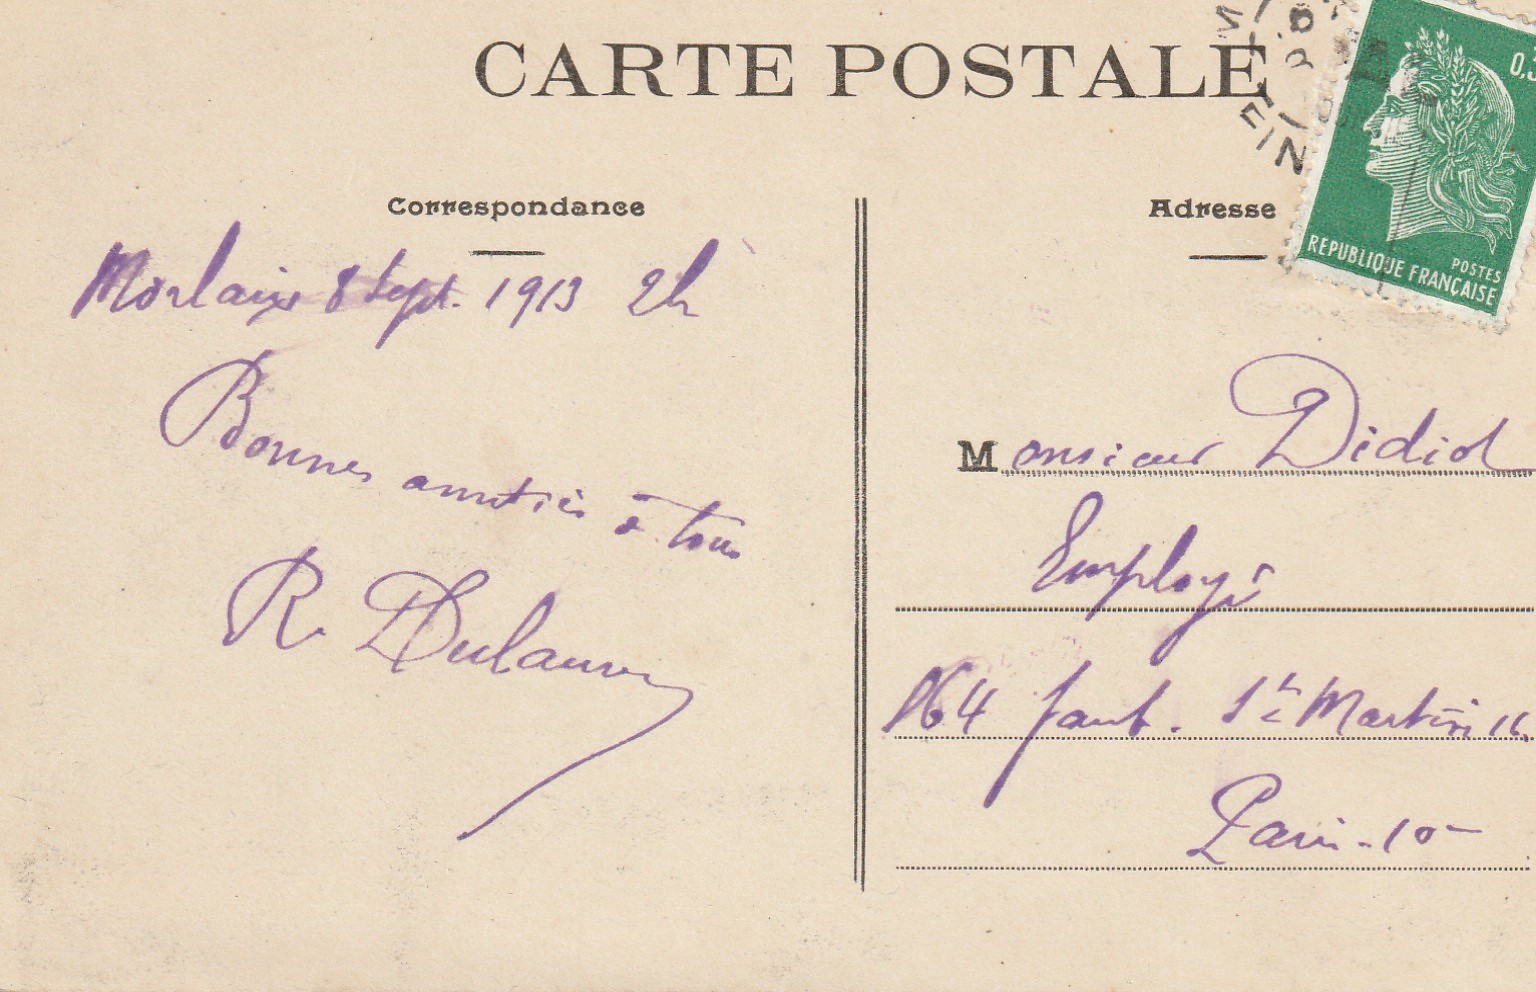 CARTE POSTALE
Correspondance
Adresse
0,3
POSTES
REPUBLIQUE FRANÇAISE
Morlaix 8 Sept. 1913 2h
Bonnes amitiés à tous
R. Dulaurey
Monsieur Didiot
Employé
164 faub. St Martin
Paris - 10